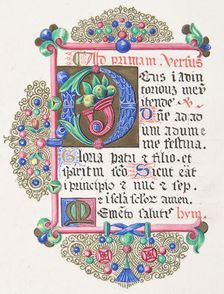 Ad primam. Versus
Deus i adiu
toriuz meuz
itende
Dne ad ad
iuuadum me
me festina
Gloria patri & filio. et
spiritui sco Sicut erat
i principio & nuc & sep.
et i scla seculor amen.
Memeto salutis hym